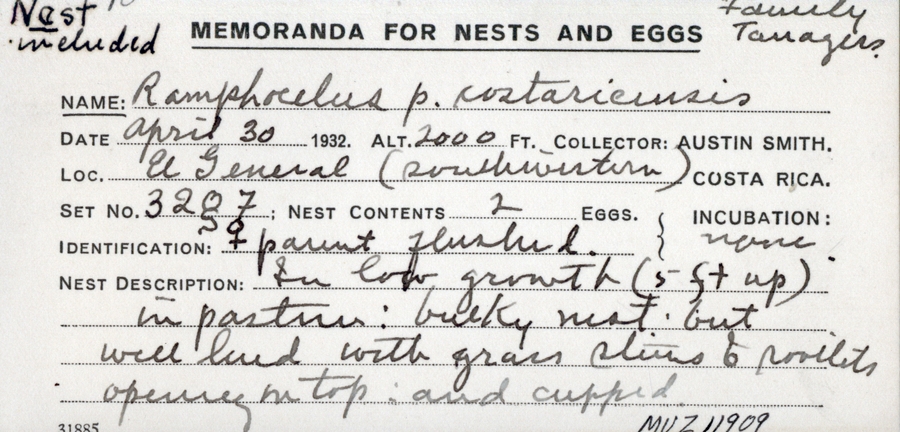 Nest
included
Family
Tanagers.
MEMORANDA FOR NESTS AND EGGS
NAME: Ramphocelus p. costaricensis
DATE April 30 1932. ALT. 2000 FT. COLLECTOR: AUSTIN SMITH.
LOC. El General (southwestern) COSTA RICA.
SET NO. 3207; NEST CONTENTS 2 EGGS. INCUBATION:
IDENTIFICATION: ♀ parent flushed. none
NEST DESCRIPTION: In low growth (5 ft up)
in pasture: bulky nest but
well lined with grass stems & rootlets
opening on top: and cupped.
31885
MVZ 11909